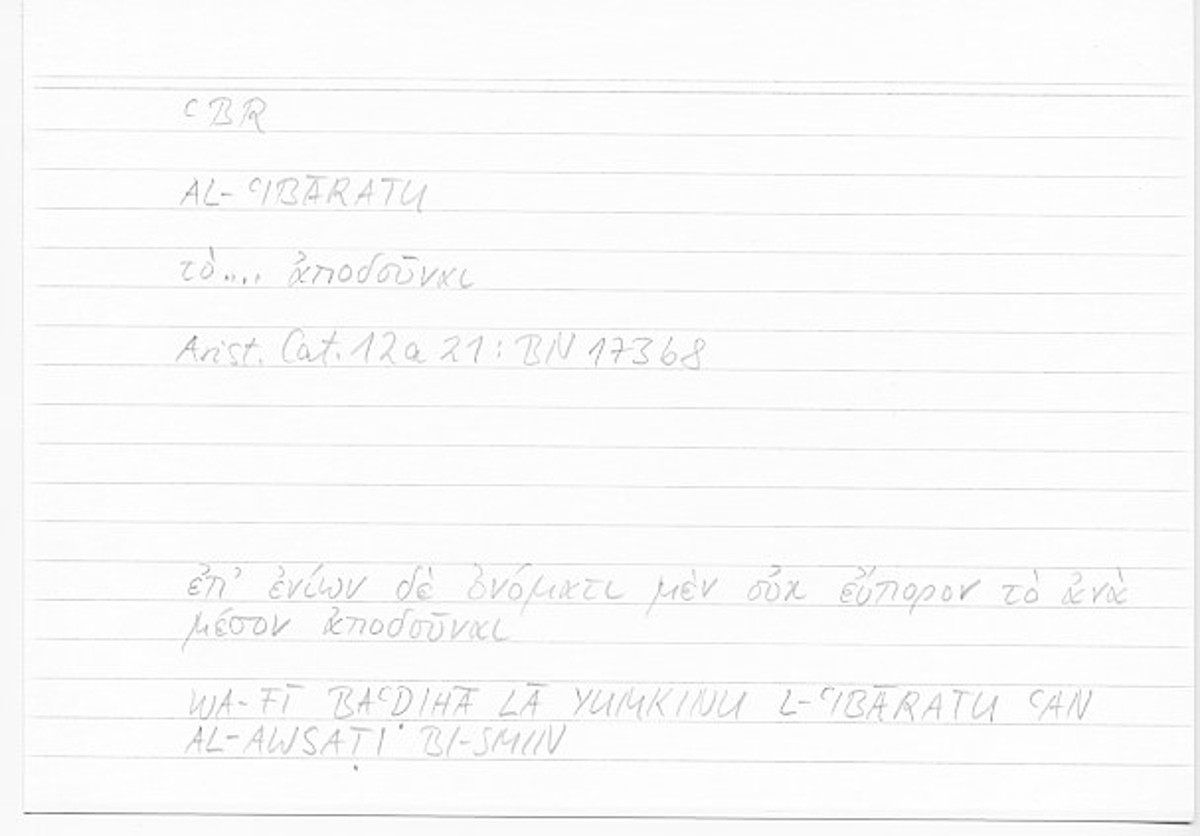 ᶜBR
AL-ᶜIBĀRATU
τὸ.... ἀποδοῦναι
Arist. Cat. 12a 21 : BN 17368
ἐπ’ ἐνίων δὲ ὀνόματι μὲν οὐκ εὔπορον τὸ ἀνὰ
μέσον ἀποδοῦναι
WA-FĪ BAᶜḌIHĀ LĀ YUMKINU L-ᶜIBĀRATU ᶜAN
AL-AWSAṬI BI-SMIN